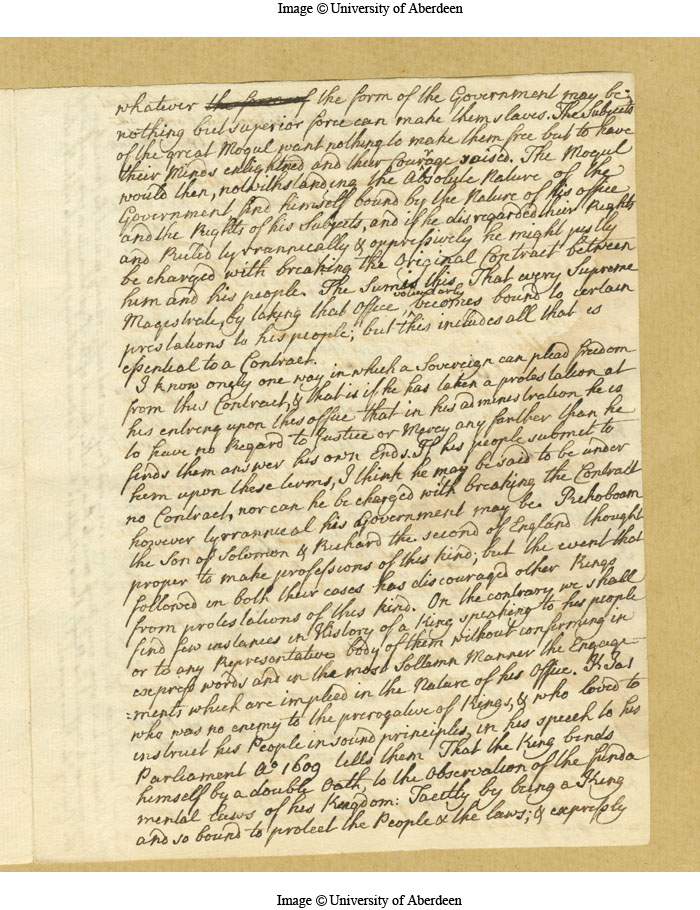 Image © University of Aberdeen
whatever the form of the form of the Government may be
nothing but superior force can make them slaves. The Subjects
of the great Mogul want nothing to make them free but to have
their Minds enlightned and their Courage raised. The Mogul
would then, notwithstanding the Absolute Nature of the
Government find himself bound by the Nature of his office
and the Rights of his Subjects, and if he disregarded their Rights
and Ruled tyrrannically & oppressively he might justly
be charged with breaking the Original Contract between
him and his people. The Sum is this That every Supreme
Magistrate, by taking that Office, voluntarly becomes bound to certain
prestations to his people; but this includes all that is
essential to a Contract.
I know onely one way in which a Sovereign can plead freedom
from this Contract, & that is if he has taken a protestation at
his entring upon this office that in his administration he is
to have no Regard to Justice or Mercy any farther than he
finds them answer his own Ends. If his people submit to
him upon these terms, I think he may be said to be under
no Contract, nor can he be charged with breaking the Contract
however tyrrannical his Government may be. Rehoboam
the Son of Solomon & Richard the second of England thought
proper to make professions of this kind; but the event that
followed in both their cases has discouraged other Kings
from protestations of this kind. On the contrary we shall
find few instances in History of a King speaking to his people
or to any Representative body of them without confirming in
express words and in the most Sollemn Manner the Engage
=ments which are implied in the Nature of his Office. K Ja 1
who was no enemy to the prerogative of Kings, & who loved to
instruct his People in sound principles, in his speech to his
Parliament Ao 1609 tells them That the King binds
himself by a double Oath, to the Observation of the funda
mental laws of his Kingdom: Tacitly by being a King
and so bound to protect the People & the laws; & expressly
Image © University of Aberdeen